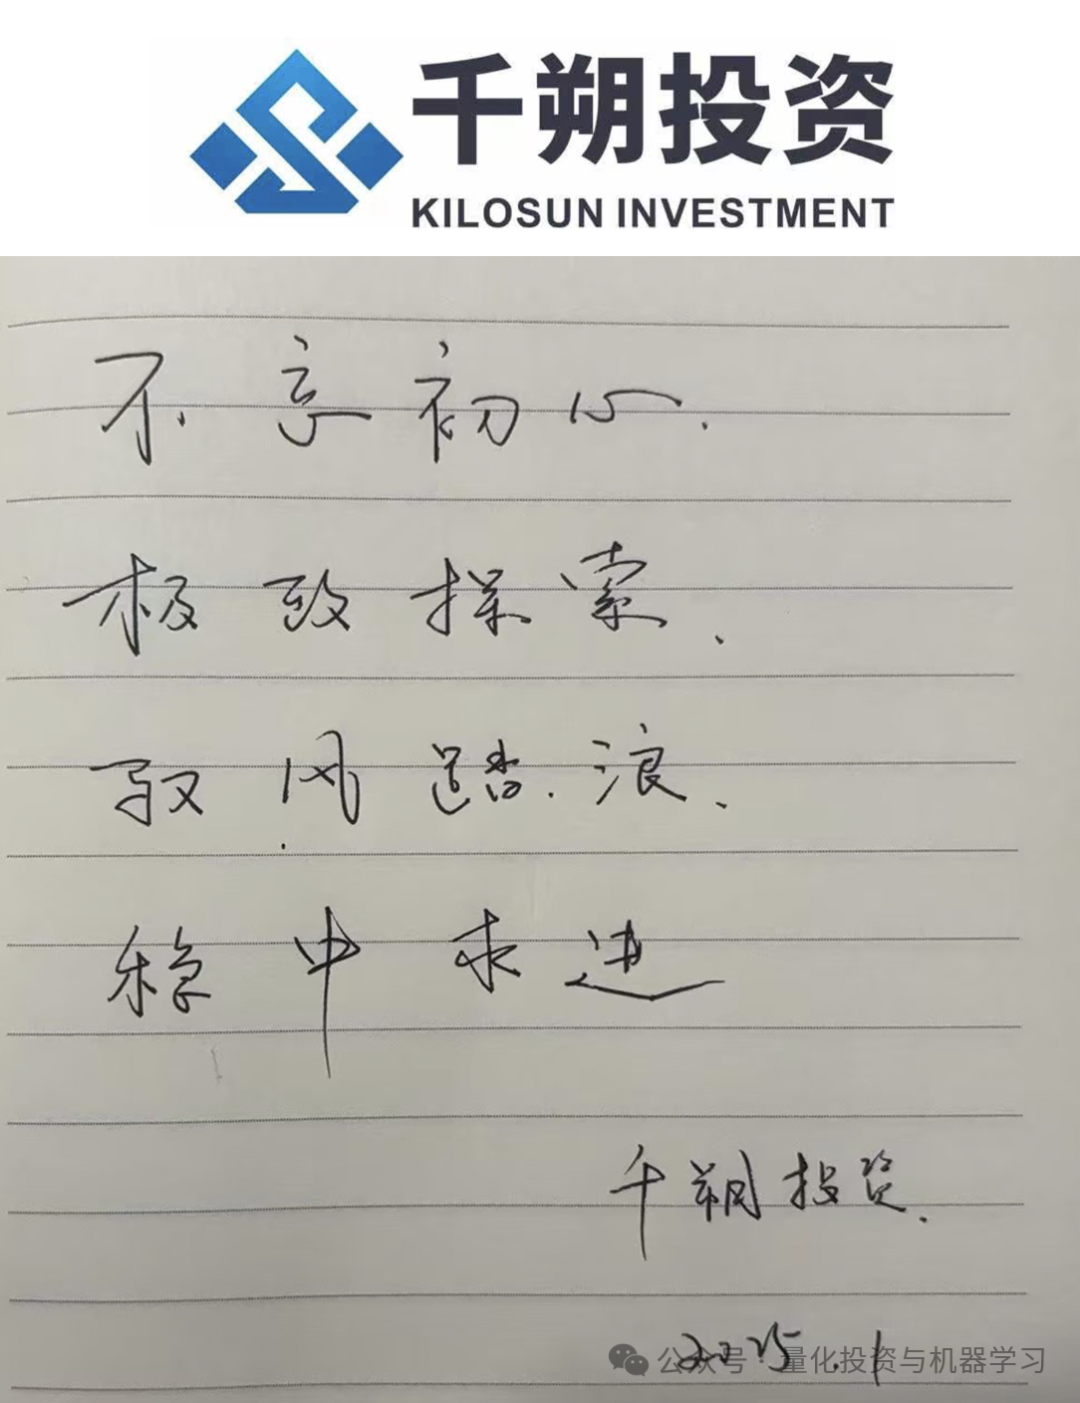 千朔投资
KILOSUN INVESTMENT
不忘初心.
极致探索.
驭风踏浪.
稳中求进
千朔投资.
2025.1
公众号·量化投资与机器学习